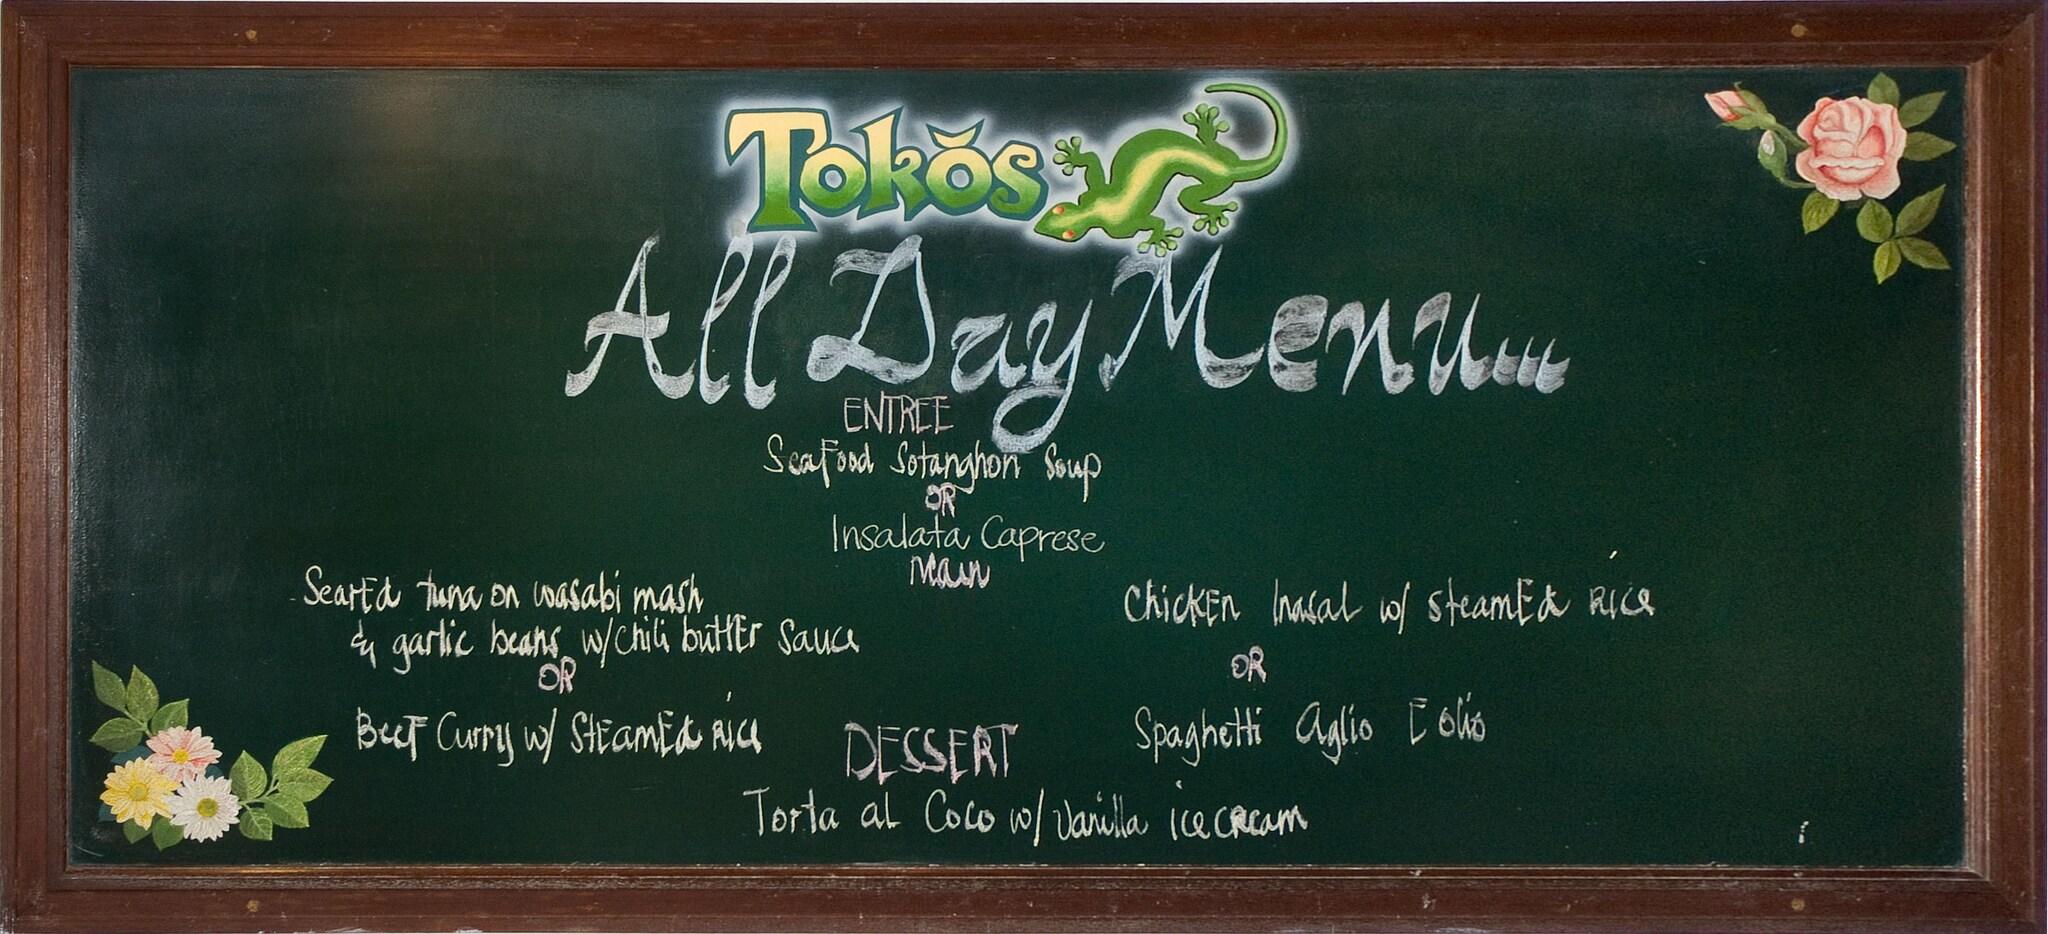 Tokŏs
All Day Menu...
ENTREE
Seafood Sotanghon Soup
OR
Insalata Caprese
Main
Seared tuna on wasabi mash
& garlic beans w/chili butter sauce
OR
Beef Curry w/ Steamed rice
Chicken Inasal w/ steamed rice
OR
Spaghetti Aglio E olio
DESSERT
Torta al Coco w/ vanilla ice cream